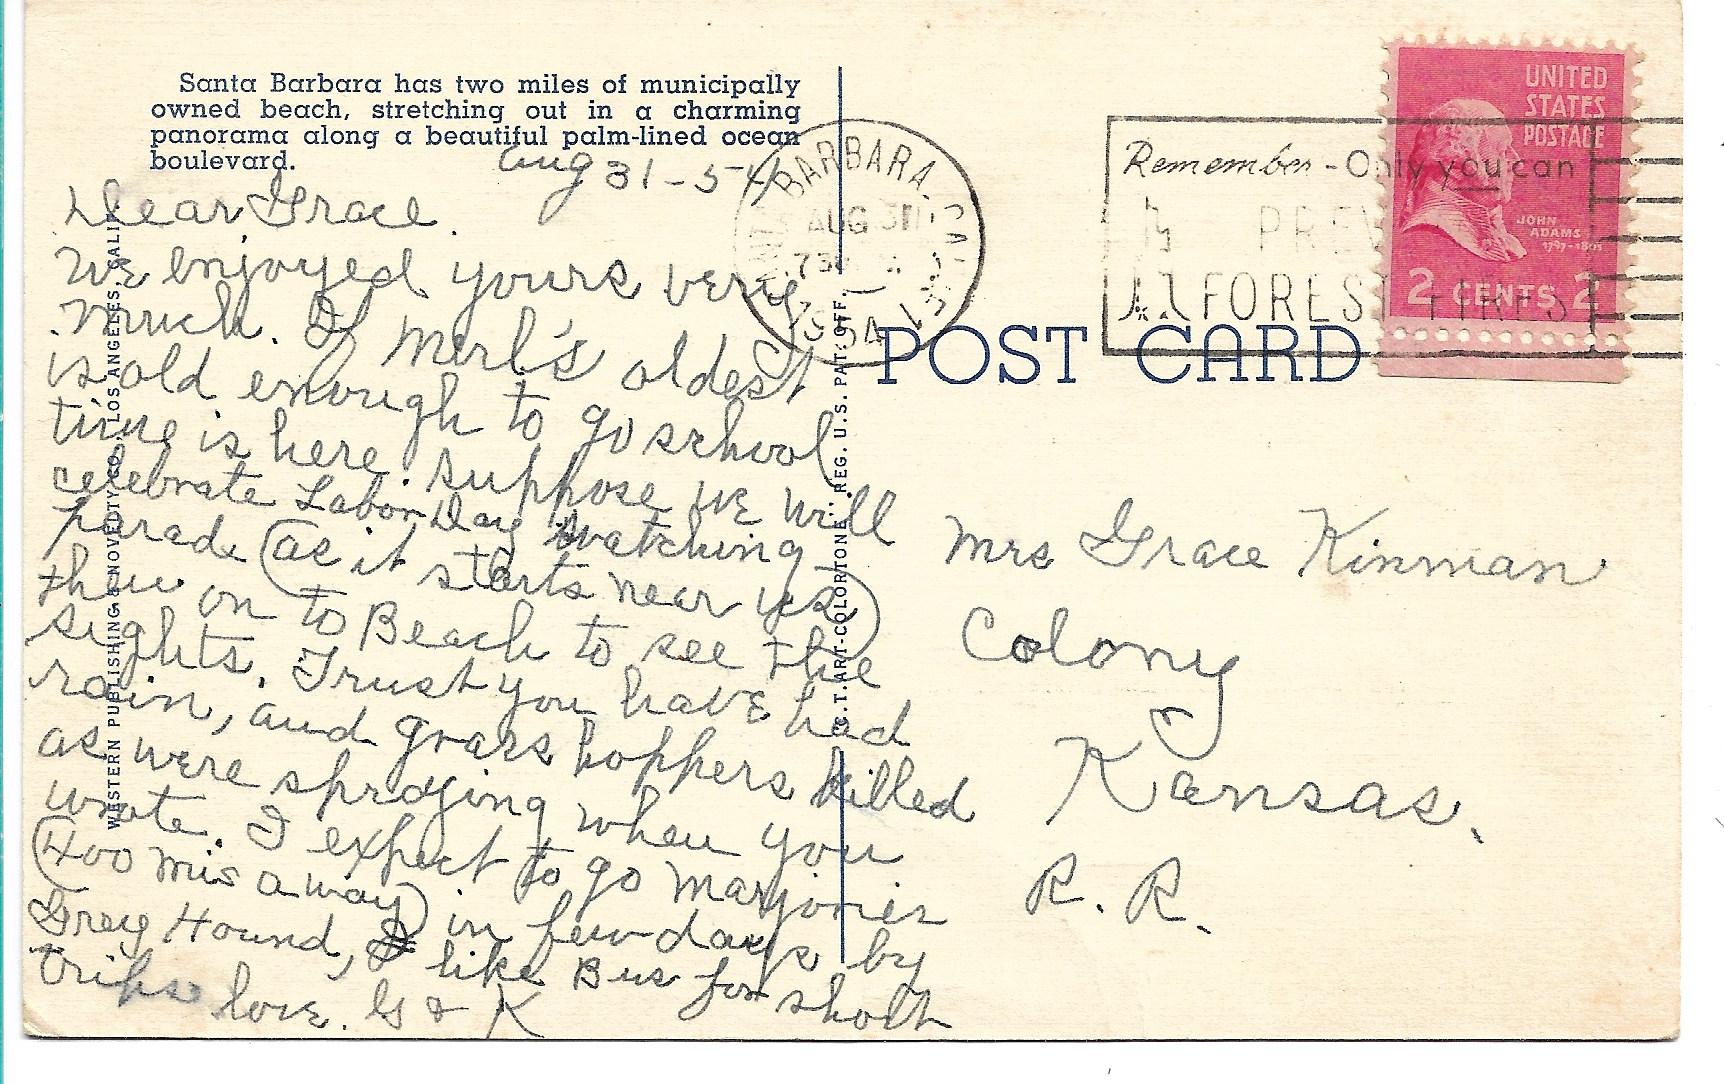 Santa Barbara has two miles of municipally
owned beach, stretching out in a charming
panorama along a beautiful palm-lined ocean
boulevard.
Aug 31-54
Dear Grace.
We enjoyed yours very
much. If Merl's oldest
is old enough to go school
time is here. Suppose we will
celebrate Labor Day watching
parade (as it starts near us)
then on to Beach to see the
sights. Trust you have had
rain, and grass hoppers killed
as were spraying when you
wrote. I expect to go Marjories
(400 mis away) in few days by
Grey Hound, I like Bus for short
trips love. G & K
WESTERN PUBLISHING & NOVELTY CO., LOS ANGELES, CALIF.
C.T. ART-COLORTONE REG. U.S. PAT. OFF.
SANTA BARBARA, CALIF.
AUG 31
1954
Remember-Only you can
PREV
FOREST FIRES
UNITED
STATES
POSTAGE
JOHN
ADAMS
1797-1801
2 CENTS 2
POST CARD
Mrs Grace Kinman
Colony
Kansas.
R. R.